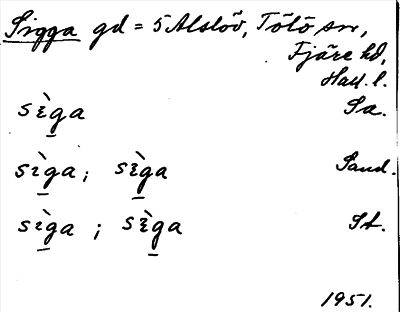 Sigga gd = 5 Alslöv, Tölö sn,
Fjäre hd,
Hall. l.
sɛ̀g̱a Sa.
sɩ̀g̱a; sɛ̀g̱a Sand.
sɩ̀g̱a; sɛ̀g̱a St.
1951.